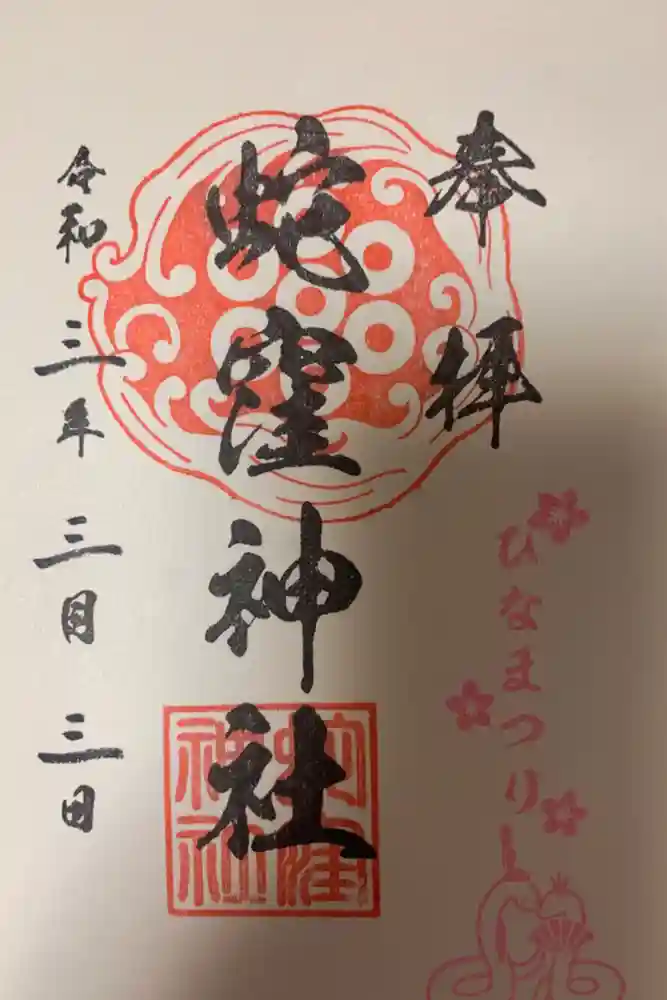 奉拝
ひなまつり
蛇窪神社
蛇窪
神社
令和三年三月三日